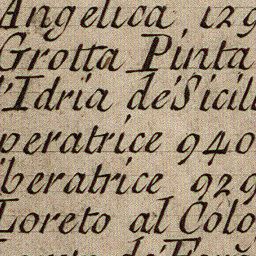 Angelica, 129
Grotta Pinta
l'Idria de' Sicil
peratrice 940
iberatrice 929
Loreto al Colo